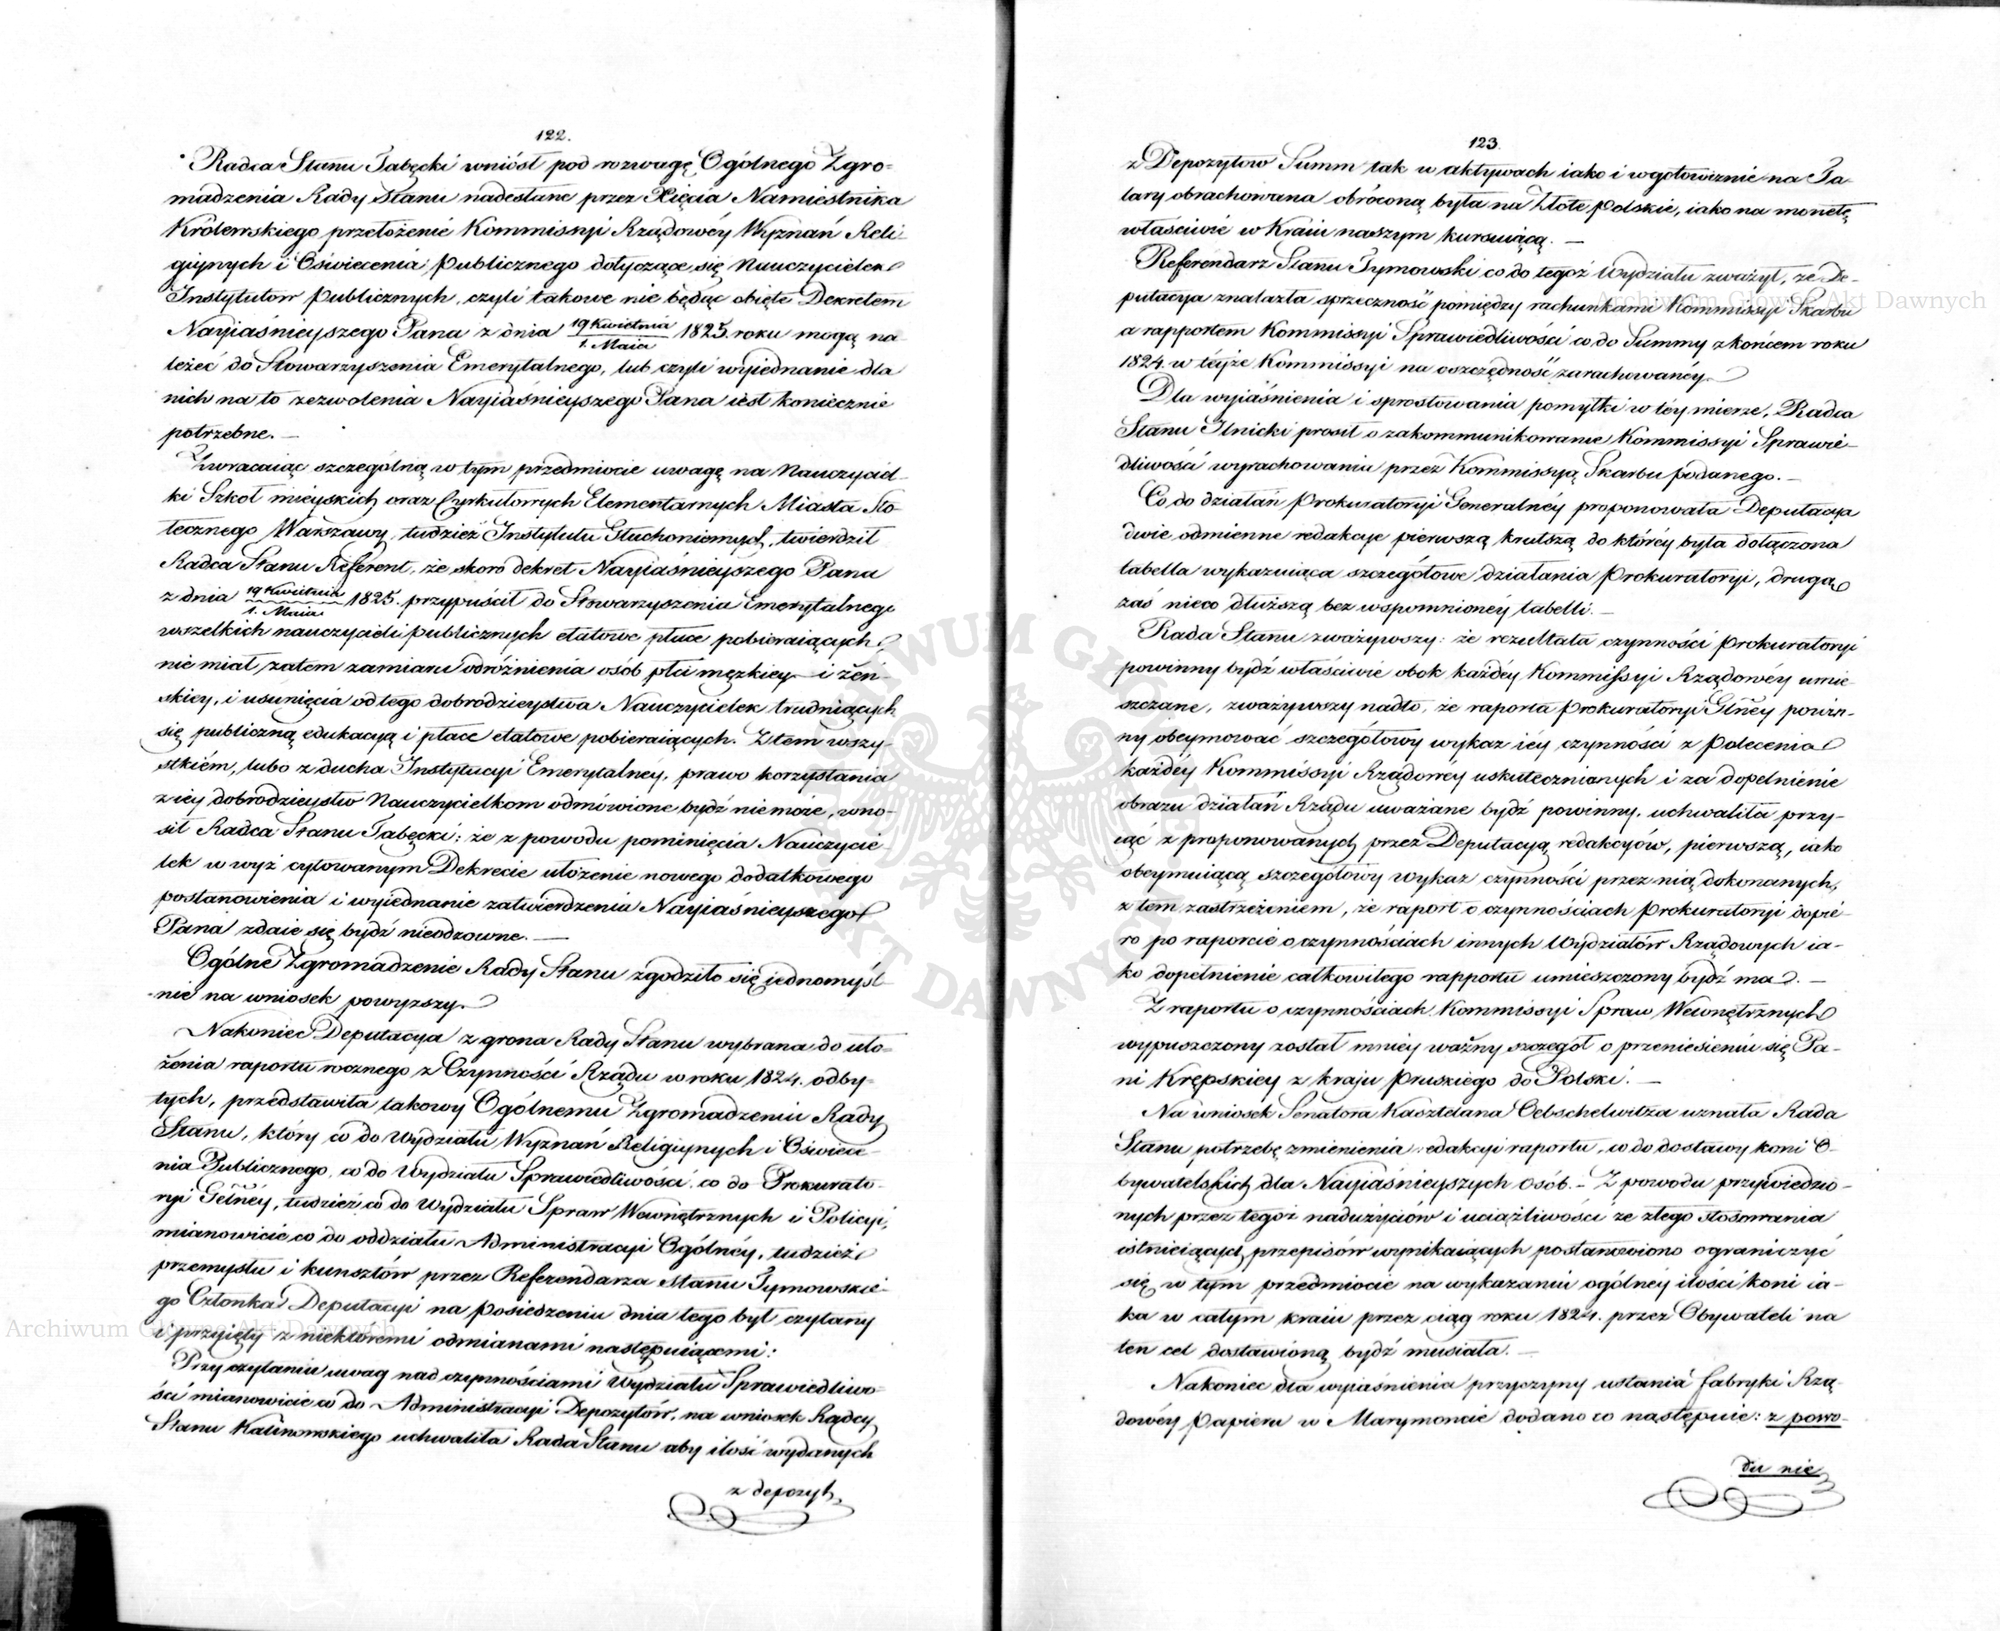 122.
Radca Stanu Tabęcki wniósł pod rozwagę Ogólnego Zgro-
madzenia Rady Stanu nadesłane przez Xięcia Namiestnika
Królewskiego przełożenie Kommissyi Rządowéy Wyznań Reli-
giynych i Oświecenia Publicznego dotyczące się Nauczycielek
Instytutów Publicznych, czyli takowe nie będąc obięte Dekretem
Nayiaśnieyszego Pana z dnia 19 Kwietnia / 1. Maia 1825. roku mogą na-
leżeć do Stowarzyszenia Emerytalnego, lub czyli wyiednanie dla
nich na to zezwolenia Nayiaśnieyszego Pana iest koniecznie
potrzebne. —
Zwracaiąc szczególną w tym przedmiocie uwagę na Nauczyciel-
ki Szkół mieyskich oraz Cyrkułowych Elementarnych Miasta Sto-
łecznego Warszawy, tudzież Instytutu Głuchoniemych, twierdził
Radca Stanu Referent, że skoro dekret Nayiaśnieyszego Pana
z dnia 19 Kwietnia / 1. Maia 1825. przypuścił do Stowarzyszenia Emerytalnego
wszelkich nauczycieli publicznych etatowe płace pobieraiących,
nie miał zatem zamiaru odróżnienia osób płci męzkiey i żeń-
skiey, i usunięcia od tego dobrodzieystwa Nauczycielek trudniących
się publiczną edukacyą i płace etatowe pobieraiących. Z tem wszy-
stkiém, lubo z ducha Instytucyi Emerytalnéy, prawo korzystania
z iey dobrodzieystw Nauczycielkom odmówione bydź nie może, wno-
sił Radca Stanu Tabęcki: że z powodu pominięcia Nauczycie-
lek w wyż cytowanym Dekrecie ułożenie nowego dodatkowego
postanowienia i wyiednanie zatwierdzenia Nayiaśnieyszego
Pana zdaie się bydź nieodzowne. —
Ogólne Zgromadzenie Rady Stanu zgodziło się jednomyśl-
nie na wniosek powyższy.
Nakoniec Deputacya z grona Rady Stanu wybrana do uło-
żenia raportu rocznego z Czynności Rządu w roku 1824. odby-
tych, przedstawiła takowy Ogólnemu Zgromadzeniu Rady
Stanu, który co do Wydziału Wyznań Religiynych i Oświece-
nia Publicznego, co do Wydziału Sprawiedliwości, co do Prokurato-
ryi Gelnéy, tudzież co do Wydziału Spraw Wewnętrznych i Policyi,
mianowicie co do oddziału Administracyi Ogólnéy, tudzież
przemysłu i kunsztów przez Referendarza Stanu Tymowskie-
go Członka Deputacyi na posiedzeniu dnia tego był czytany
i przyięty z niektóremi odmianami następuiącemi:
Przy czytaniu uwag nad czynnościami Wydziału Sprawiedliwo-
ści mianowicie co do Administracyi Depozytów, na wniosek Radcy
Stanu Kalinowskiego uchwaliła Rada Stanu aby ilość wydanych
z depozyt.
123.
z Depozytów Summ tak w aktywach iako i w gotowiznie na Ta-
lary obrachowana obróconą była na Złote Polskie, iako na monetę
właściwie w Kraiu naszym kursuiącą. —
Referendarz Stanu Tymowski co do tegoż Wydziału zważył, że De-
putacya znalazła sprzeczność pomiędzy rachunkami Kommissyi Skarbu
a rapportem Kommissyi Sprawiedliwości co do Summy z końcem roku
1824. w teyże Kommissyi na oszczędność zarachowaney.
Dla wyiaśnienia i sprostowania pomyłki w téy mierze, Radca
Stanu Ilnicki prosił o zakommunikowanie Kommissyi Sprawie-
dliwości wyrachowania przez Kommissyą Skarbu podanego. —
Co do działań Prokuratoryi Generalnéy proponowała Deputacya
dwie odmienne redakcye pierwszą krutszą do którey była dołączona
tabella wykazuiąca szczegółowe działania Prokuratoryi, drugą
zaś nieco dłuższą bez wspomnionéy tabelli. —
Rada Stanu zważywszy: że rezultata czynności Prokuratoryi
powinny bydź właściwie obok każdéy Kommissyi Rządowéy umie-
szczane, zważywszy nadto, że raporta Prokuratoryi Glney powin-
ny obeymować szczegółowy wykaz iéy czynności z polecenia
każdéy Kommissyi Rządowéy uskutecznianych i za dopełnienie
obrazu działań Rządu uważane bydź powinny, uchwaliła przy-
iąć z proponowanych przez Deputacyą redakcyów, pierwszą, iako
obeymuiącą szczegółowy wykaz czynności przez nią dokonanych,
z tem zastrzeżeniem, że raport o czynnościach Prokuratoryi dopié-
ro po raporcie o czynnościach innych Wydziałów Rządowych ia-
ko dopełnienie całkowitego rapportu umieszczony bydź ma. —
Z raportu o czynnościach Kommissyi Spraw Wewnętrznych
wypuszczony został mniey ważny szczegół o przeniesieniu się Pa-
ni Krępskiey z kraju Pruskiego do Polski. —
Na wniosek Senatora Kasztelana Oebschelwitza uznała Rada
Stanu potrzebę zmienienia redakcyi raportu, co do dostawy koni O-
bywatelskich dla Nayiaśnieyszych Osób. — Z powodu przywiedzio-
nych przez tegoż nadużyciów i uciążliwości ze złego stosowania
istnieiących przepisów wynikaiących postanowiono ograniczyć
się w tym przedmiocie na wykazaniu ogólnéy ilości koni ia-
ka w całym kraiu przez ciąg roku 1824. przez Obywateli na
ten cel dostawioną bydź musiała. —
Nakoniec dla wyiaśnienia przyczyny ustania fabryki Rzą-
dowéy Papieru w Marymoncie dodano co następuie: z powo-
du nie
Archiwum Główne Akt Dawnych
Archiwum Główne Akt Dawnych
ARCHIWUM GŁÓWNE AKT DAWNYCH